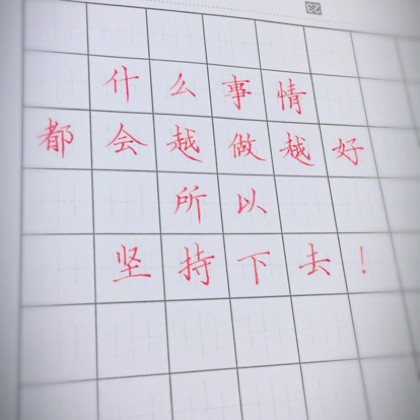 什么事情
都会越做越好
所以
坚持下去！